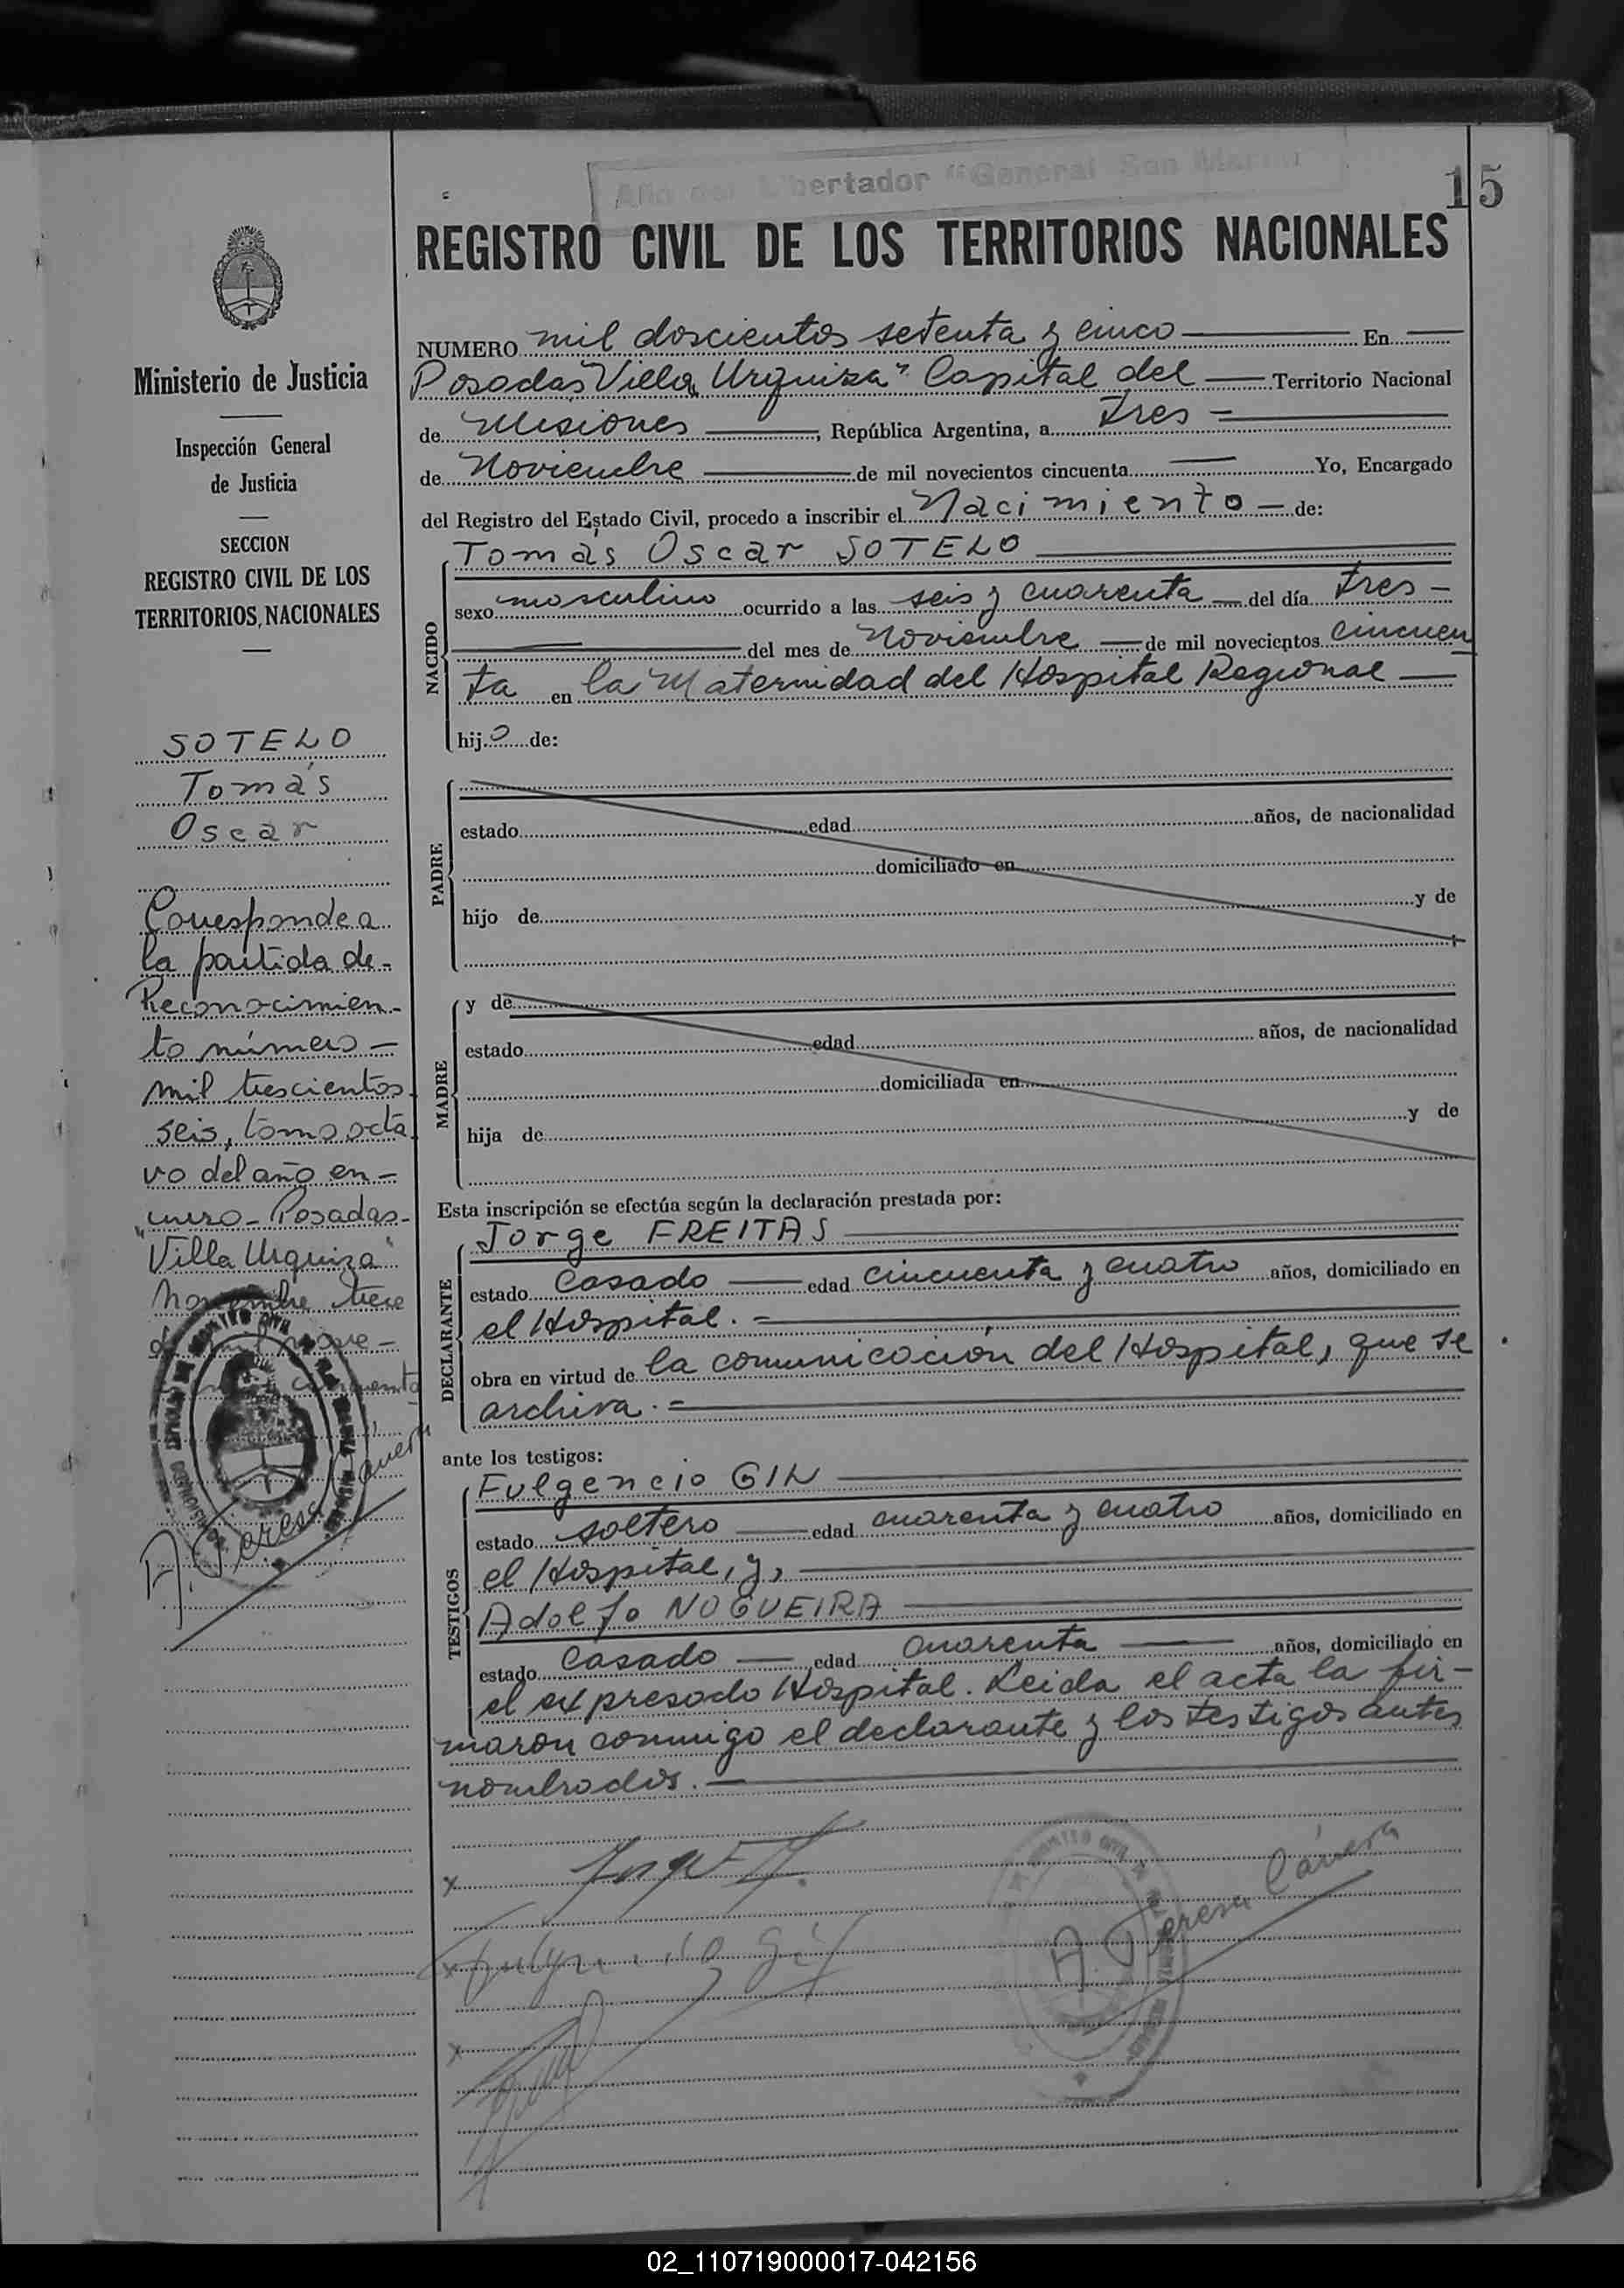 Año del Libertador "General San Martín"
15
REGISTRO CIVIL DE LOS TERRITORIOS NACIONALES
Ministerio de Justicia
Inspección General
de Justicia
SECCION
REGISTRO CIVIL DE LOS
TERRITORIOS NACIONALES
SOTELO
Tomás
Oscar
Corresponde a
la partida de-
Reconocimien-
to número-
mil trescientos
seis, tomo octa
vo del año en-
curso- Posadas-
"Villa Urquiza"
Noviembre trece
de mil nove-
cincuenta
A. Teresa
NUMERO mil doscientos setenta y cinco En
Posadas "Villa Urquiza" Capital del Territorio Nacional
de Misiones, República Argentina, a tres
de Noviembre de mil novecientos cincuenta Yo, Encargado
del Registro del Estado Civil, procedo a inscribir el Nacimiento de:
NACIDO
Tomás Oscar SOTELO
sexo masculino ocurrido a las seis y cuarenta del día tres
del mes de Noviembre de mil novecientos cincuen
ta en la Maternidad del Hospital Regional
hijo de:
PADRE
estado edad años, de nacionalidad
domiciliado en
hijo de y de
MADRE
y de
estado edad años, de nacionalidad
domiciliada en
hija de y de
Esta inscripción se efectúa según la declaración prestada por:
DECLARANTE
Jorge FREITAS
estado casado edad cincuenta y cuatro años, domiciliado en
el Hospital.
obra en virtud de la comunicación del Hospital, que se
archiva.
ante los testigos:
TESTIGOS
Fulgencio GIL
estado soltero edad cuarenta y cuatro años, domiciliado en
el Hospital, y,
Adolfo NOGUEIRA
estado casado edad cuarenta años, domiciliado en
el expresado Hospital. Leida el acta la fir-
maron conmigo el declarante y los testigos antes
nombrados.
x
x Fulgencio Gil
A. Teresa
x
02_110719000017-042156